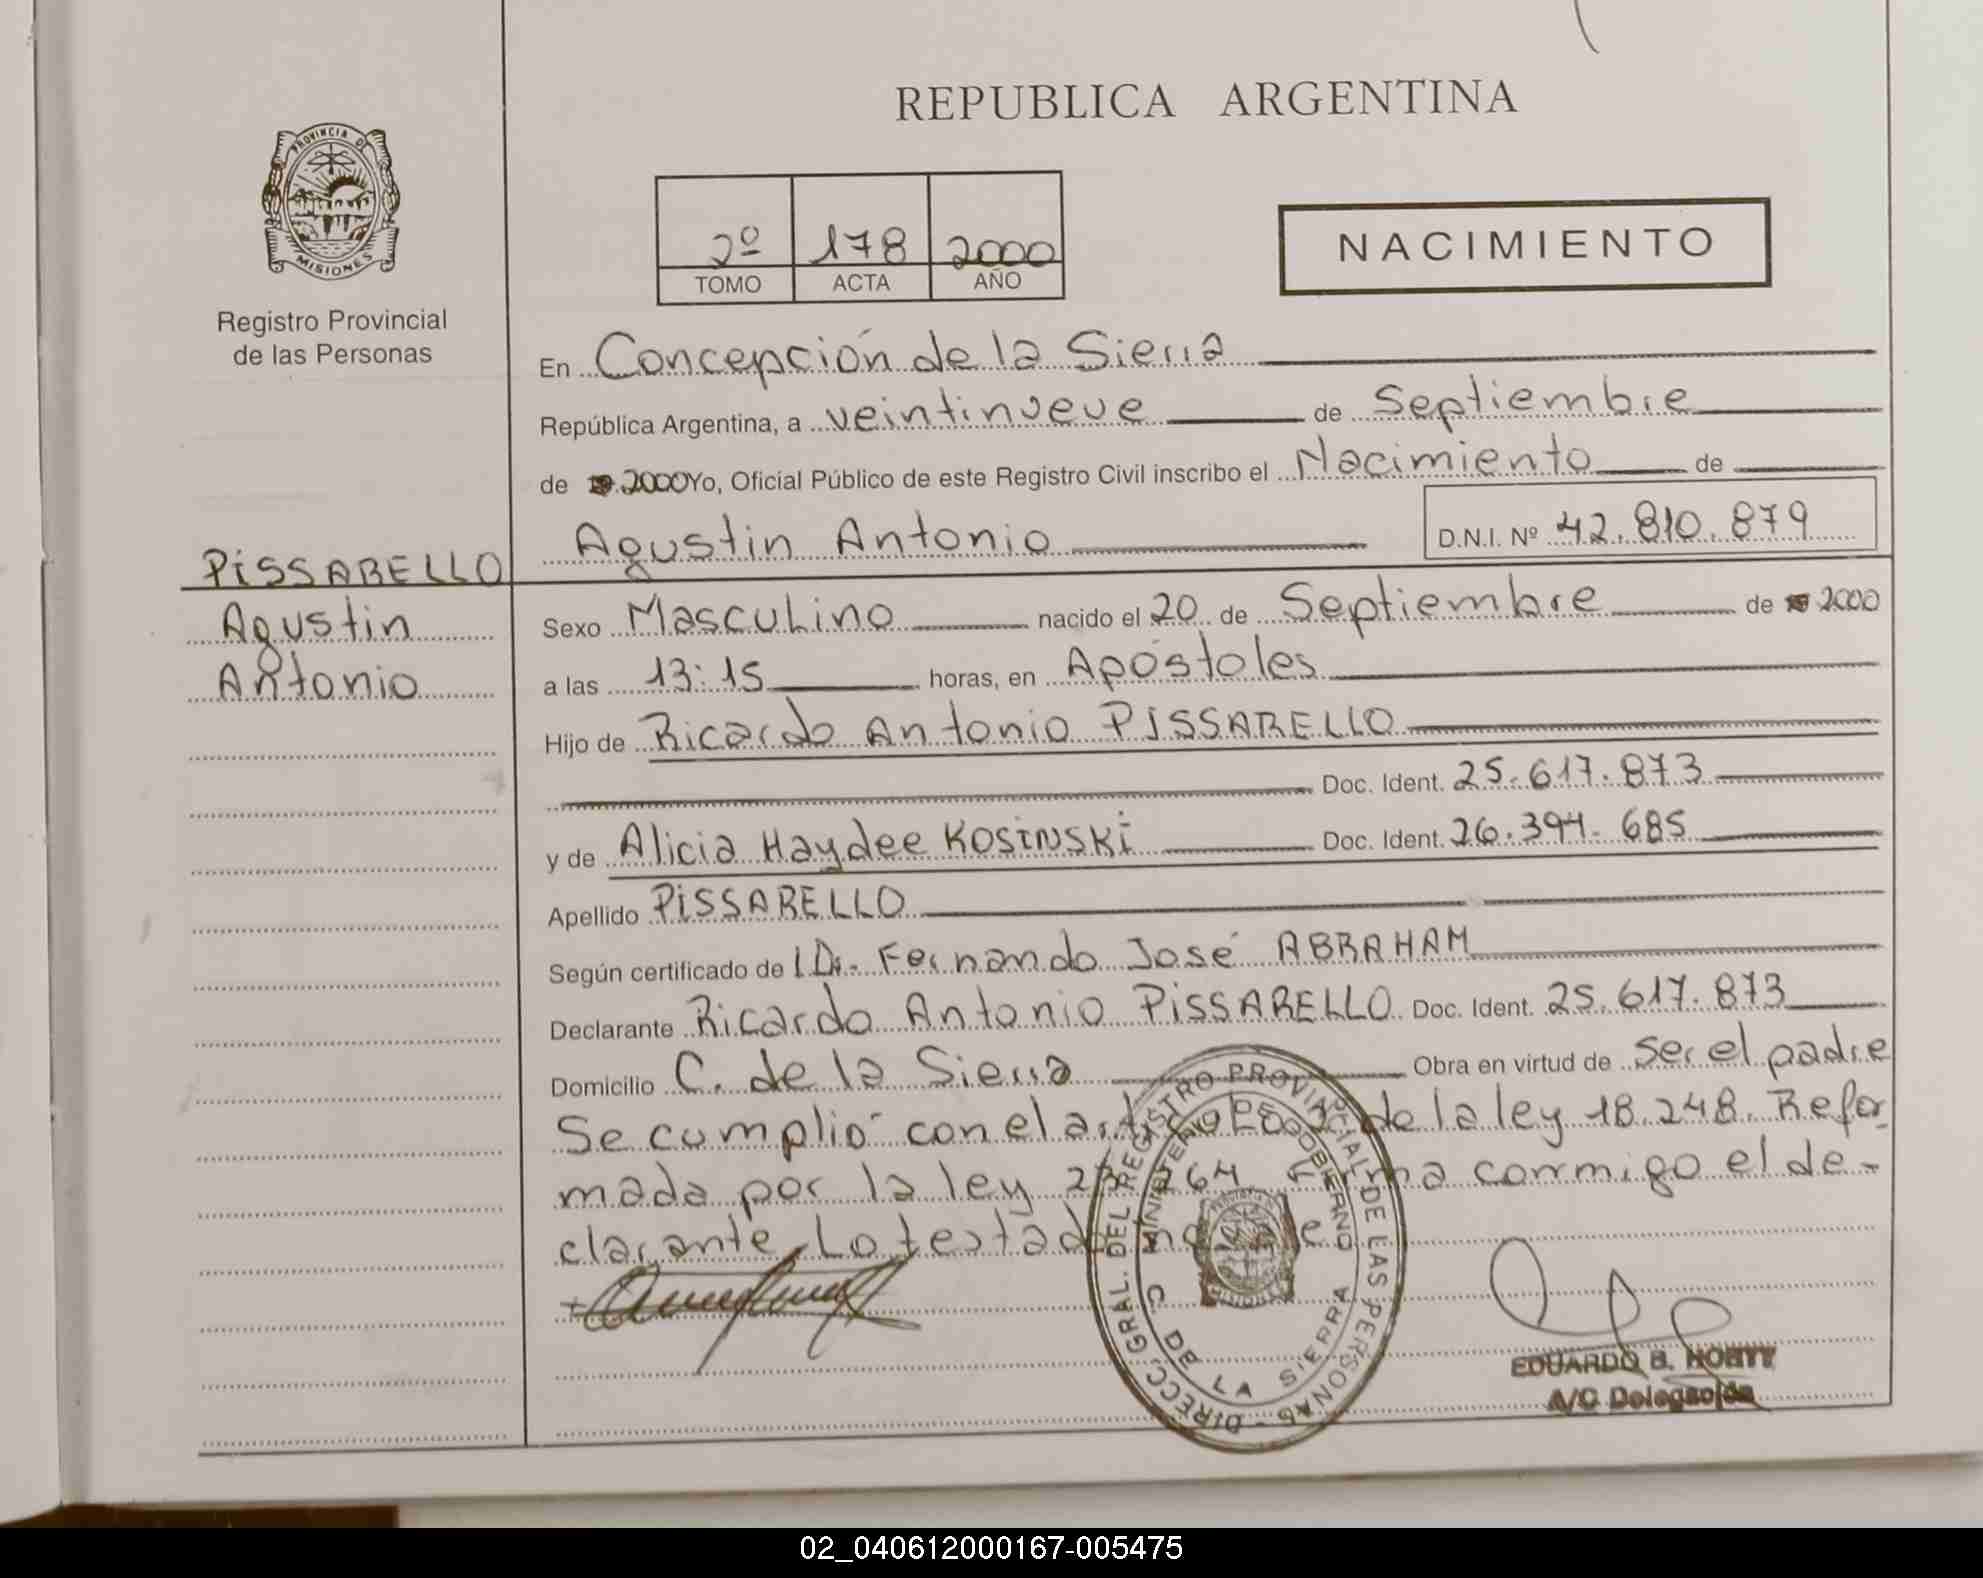 REPUBLICA ARGENTINA
PROVINCIA DE MISIONES
Registro Provincial
de las Personas
2º 178 2000
TOMO ACTA AÑO
NACIMIENTO
En Concepción de la Sierra
República Argentina, a veintinueve de Septiembre
de 2000 Yo, Oficial Público de este Registro Civil inscribo el Nacimiento de
Agustin Antonio D.N.I. Nº 42.810.879
PISSARELLO
Agustin
Antonio
Sexo Masculino nacido el 20 de Septiembre de 2000
a las 13:15 horas, en Apóstoles
Hijo de Ricardo Antonio PISSARELLO
Doc. Ident. 25.617.873
y de Alicia Haydee KOSINSKI Doc. Ident. 26.394.685
Apellido PISSARELLO
Según certificado de Dr. Fernando José ABRAHAM
Declarante Ricardo Antonio PISSARELLO Doc. Ident. 25.617.873
Domicilio C. de la Sierra Obra en virtud de ser el padre
Se cumplió con el de la ley 18.248. Refor-
mada por la ley 23.264 Firma conmigo el de-
clarante. Lo testado no vale
DIRECC. GRAL. DEL REGISTRO PROVINCIAL DE LAS PERSONAS
MINISTERIO DE GOBIERNO
C. DE LA SIERRA
EDUARDO B.
A/C Delegación
02_040612000167-005475